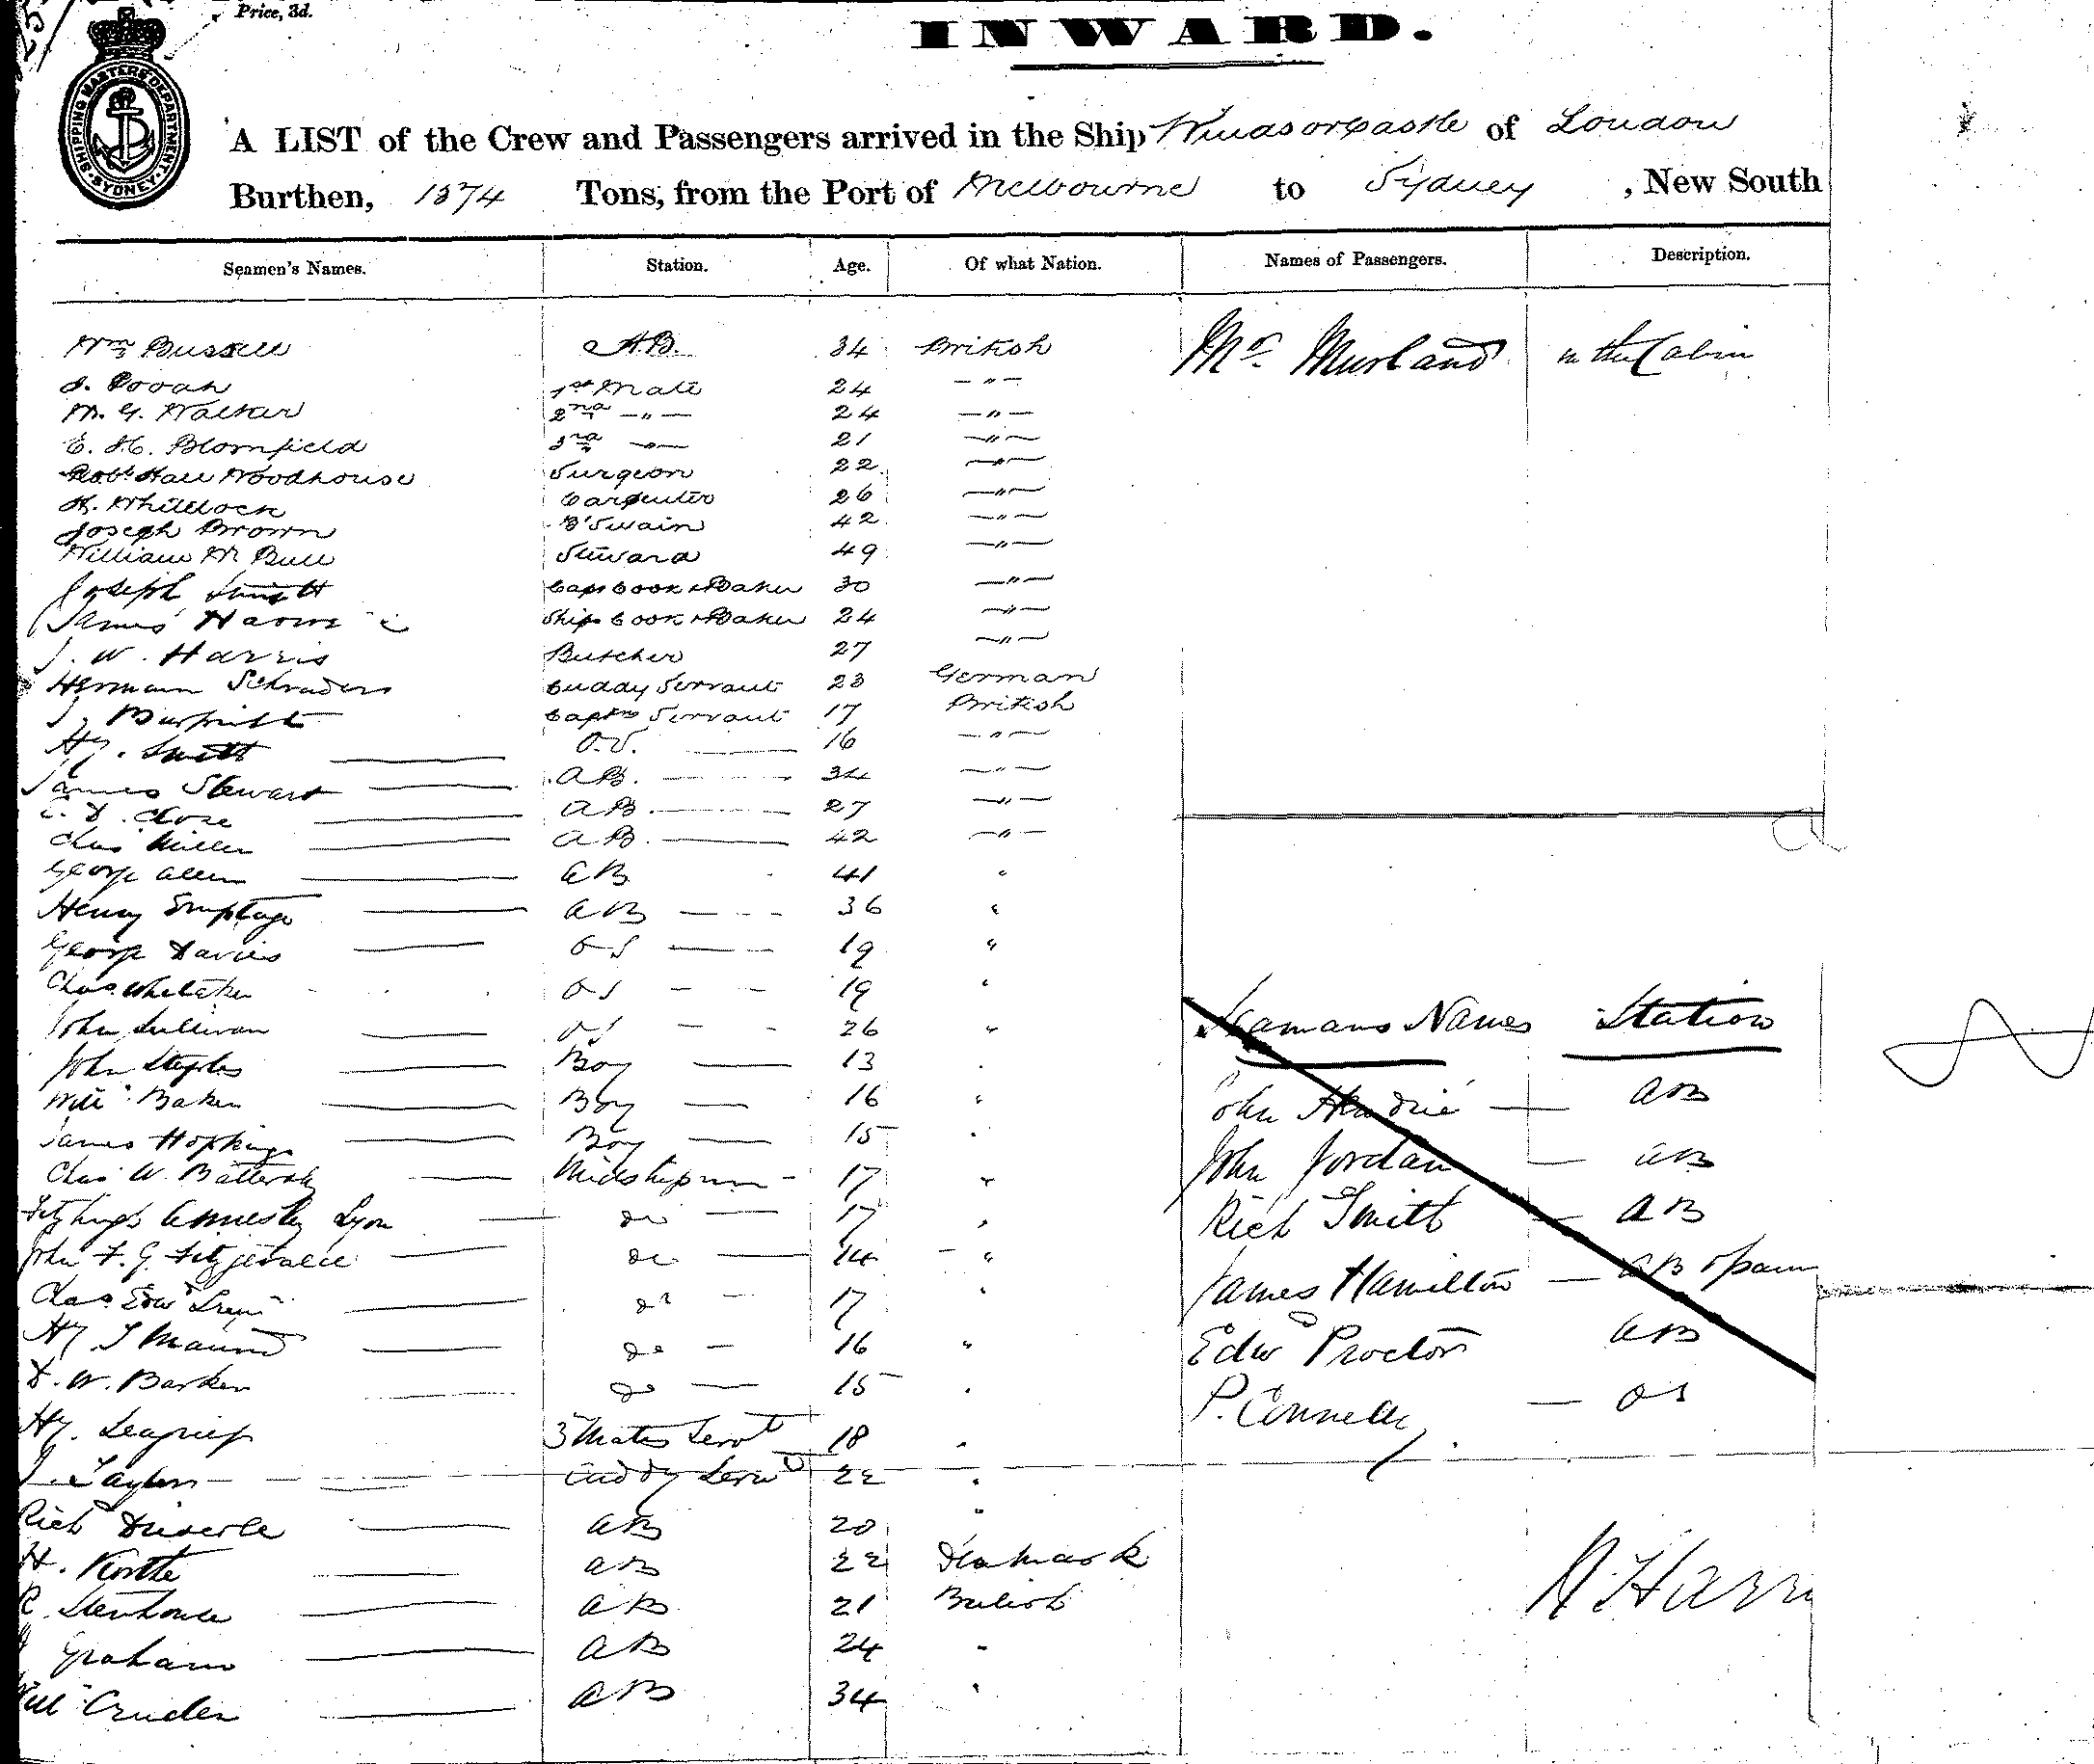 Price, 3d.
INWARD.
SHIPPING MASTERS DEPARTMENT SYDNEY
A LIST of the Crew and Passengers arrived in the Ship Windsorcastle of London
Burthen, 1374 Tons, from the Port of Melbourne to Sydney, New South
Seamen's Names. Station. Age. Of what Nation. Names of Passengers. Description.
Wm Bussell A.B. 34 British Mr Murland in the Cabin
1st Mate 24 -"-
M. G. Walker 2nd -"- 24 -"-
E. H. Blomfield 3rd -"- 21 -"-
Robt Hall Woodhouse Surgeon 22 -"-
H. Whitlock Carpenter 26 -"-
Joseph Brown B'Swain 42 -"-
William W. Bull Steward 49 -"-
Joseph Smith Cook & Baker 30 -"-
James Ships Cook & Baker 24 -"-
J. W. Harris Butcher 27 -"-
Herman Schraders Cuddy Servant 23 German
Captns Servant 17 British
Hy. Smith O.S. 16 -"-
James Stewart A.B. 34 -"-
Close A.B. 27 -"-
Chas Miller A.B. 42 -"-
George Allen AB 41 "
Henry Emptage AB 36 "
George Davies OS 19 "
Chas. Whitaker OS 19 "
John Sullivan OS 26 "
John Staples Boy 13 "
Will Baker Boy 16 "
James Hopkings Boy 15 "
Chas W. Battersby Midshipman 17 "
Fitzhugh Annesley Lyon do 17 "
John F. G. Fitzgerald do 14 "
Chas. Edwd do 17 "
Hy J Maund do 16 "
D. W. Barker do 15 "
Hy. 3 Mates Servt 18 "
J. Taylor Cuddy Servt 22 "
Richd AB 20 "
H. Korth AB 22 Denmark
R. Stenhouse AB 21 British
Graham AB 24 "
Will Cruden AB 34 "
Seamans Names Station
John AB
John Jordan AB
Rich Smith AB
James Hamilton AB
Edwd Proctor AB
P. Connell OS